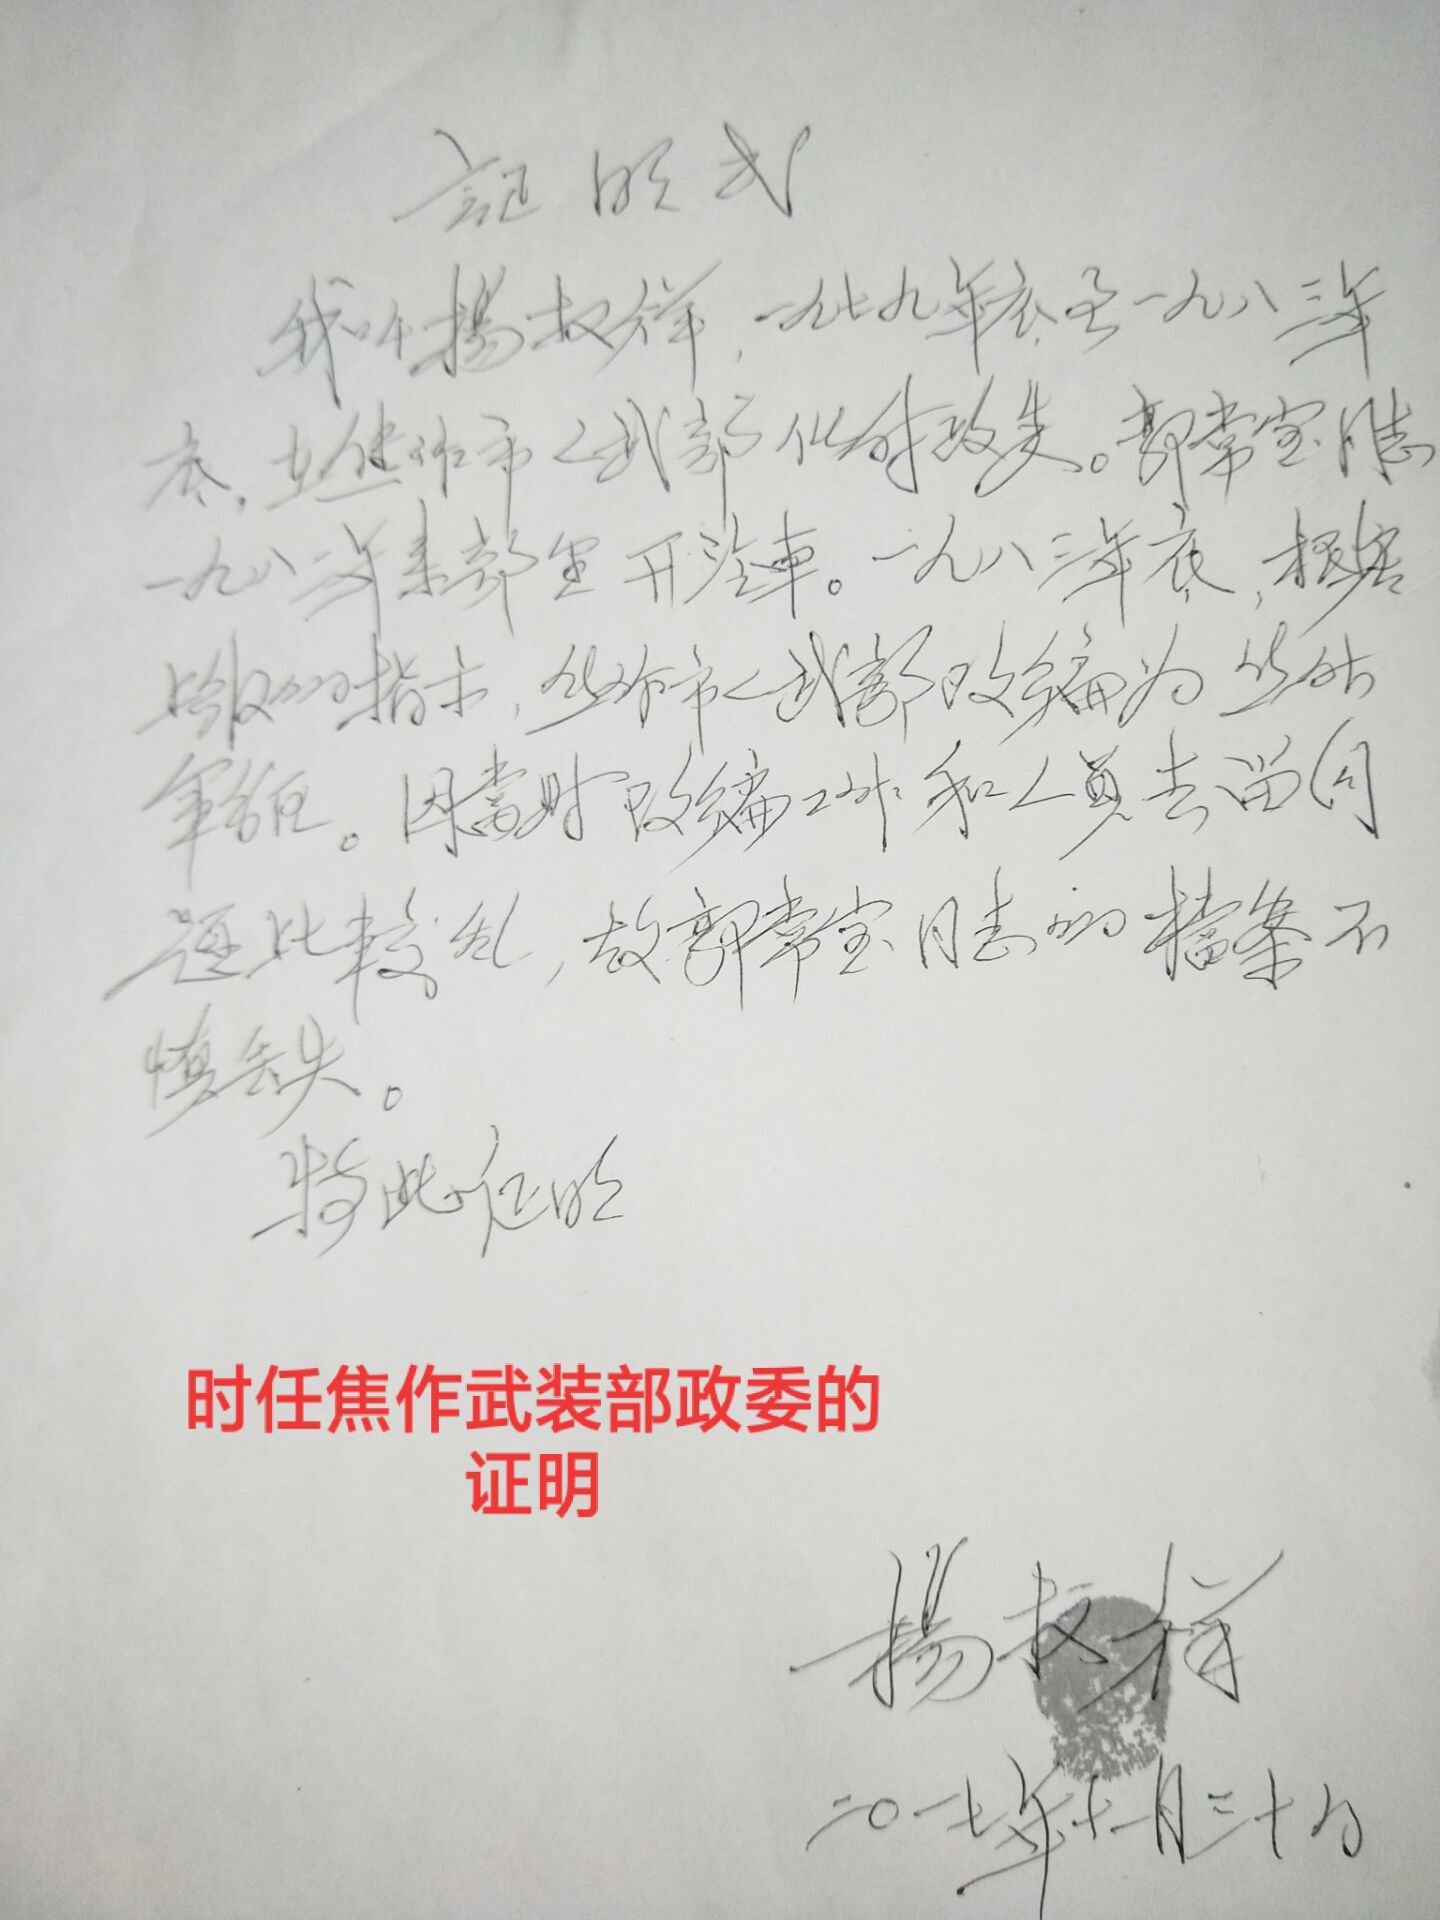 証明书
我叫楊权祥，一九七九年底至一九八三年
底，在焦作市人武部任付政委。郭常宝同志
一九八二年来部里开汽車。一九八三年底，根据
上级的指示，焦作市人武部改编为焦作
军分区。因當时改编工作和人員去留问
题比較乱，故郭常宝同志的檔案不
慎丢失。
特此证明
时任焦作武装部政委的
证明
楊权祥
二〇一七年十一月三十日